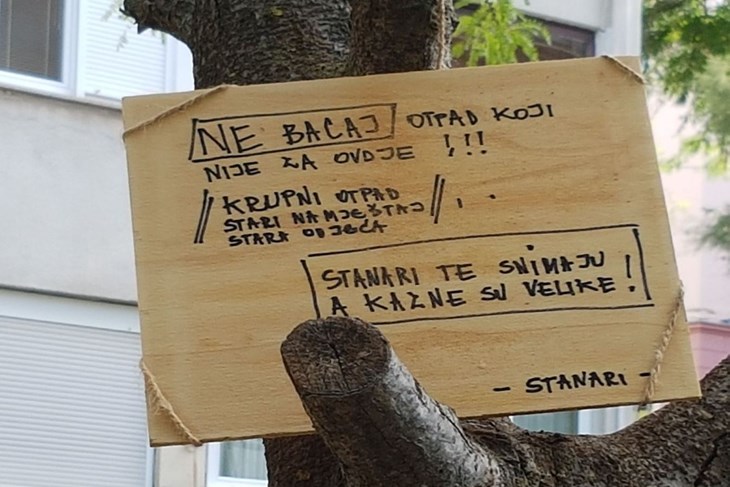 NE BACAJ OTPAD KOJI
NIJE ZA OVDJE !!!
// KRUPNI OTPAD //, .
STARI NAMJEŠTAJ
STARA ODJEĆA
STANARI TE SNIMAJU
A KAZNE SU VELIKE!
- STANARI -